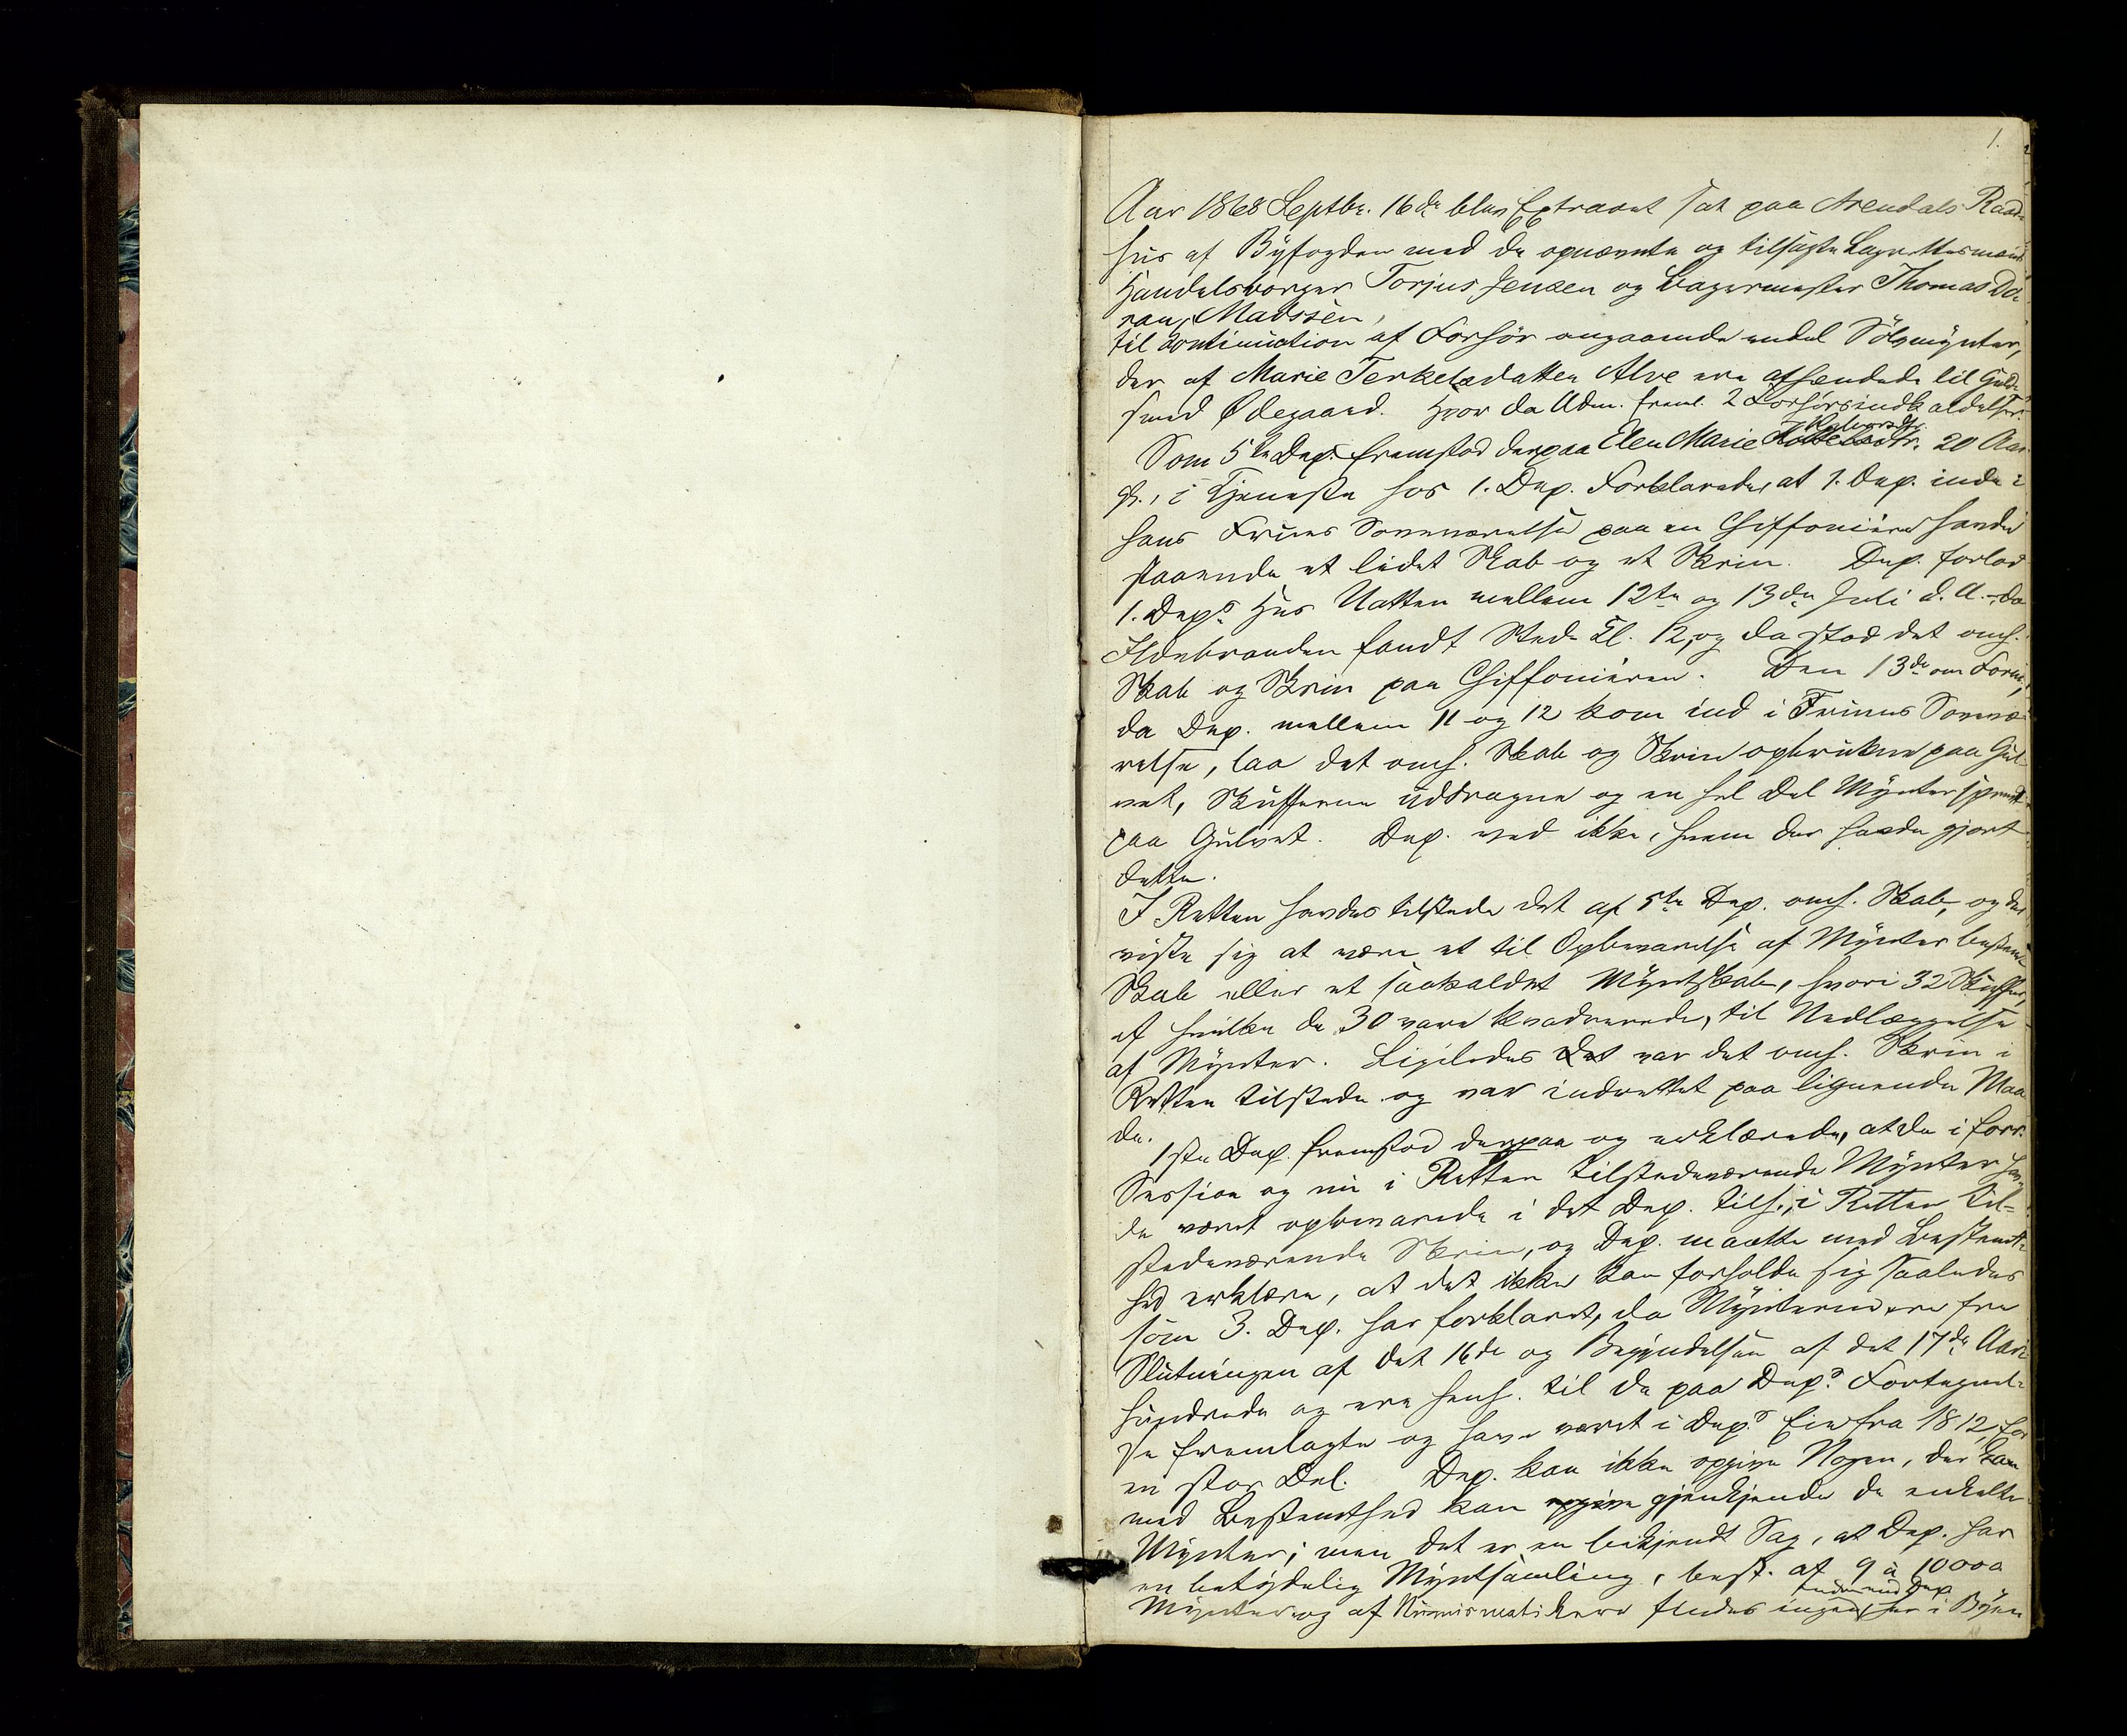 1.
Aar 1868 Septbr. 16de blev Extraret sat paa Arendals Raad-
hus af Byfogden med de opnævnte og tilsagte Lagrettesmænd
Handelsborger Torjus Jensen og Bagermester Thomas
Madssen,
til Continuation af Forhør angaaende endel Sølvmynter,
der af Marie Terkelsdatter Alve ere afhændede til Guld-
smed Ødegaard. Hvor da Adm. freml. 2 Forhørsindkaldelser.
Halvorsdtr.
Som 5te Dep. fremstod derpaa Elen Marie 20 Aar
gl., i Tjeneste hos 1. Dep. Forklarede, at 1. Dep. inde i
hans Frues Soveværelse paa en Chiffoniere havde
staaende et lidet Skab og et Skrin. Dep. forlod
1. Deps Hus Natten mellem 12te og 13de Juli d. A. da
Ildebranden fandt Sted Kl. 12, og da stod det omh.
Skab og Skrin paa Chiffonièren. Den 13de om Form.,
da Dep. mellem 11 og 12 kom ind i Fruens Sovevæ-
relse, laa det omh. Skab og Skrin opbrukne paa Gul-
vet, Skufferne uddragne og en hel Del Mynter spredt
paa Gulvet. Dep. ved ikke, hvem der havde gjort
dette.
I Retten havdes tilstede det af 5te Dep. omh. Skab, og det
viste sig at være et til Opbevarelse af Mynter bestemt
Skab eller et saakaldet Myntskab, hvori 32 Skuffer,
af hvilke de 30 vare kvadrerede, til Nedlæggelse
af Mynter. Ligeledes det var det omh. Skrin i
Retten tilstede og var indrettet paa lignende Maa-
de.
1ste Dep. fremstod derpaa og erklærede, at de i forr.
Session og nu i Retten tilstedeværende Mynter hav-
de været opbevarede i det Dep. tilh., i Retten til-
stedeværende Skrin, og Dep. maatte med Bestemt-
hed erklære, at det ikke kan forholde sig saaledes
som 3. Dep. har forklaret, da Mynterne ere fra
Slutningen af det 16de og Begyndelsen af det 17de Aar-
hundrede og ere henh. til de paa Deps Fortegnel-
se fremlagte og have været i Deps Eie fra 1812, for
en stor Del. Dep. kan ikke opgive Nogen, der kan
med Bestemthed kan opgive gjenkjende de enkelte
Mynter; men det er en bekjendt Sag, at Dep. har
en betydelig Myntsamling, best. af 9 à 10000
anden end Dep.
Mynter og af Numismatikere findes ingen her i Byen